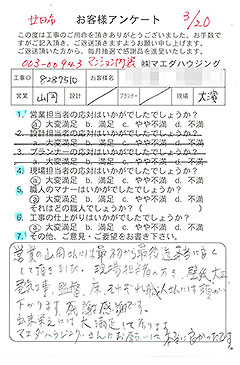 廿日市 お客様アンケート 3/20
この度は工事のご用命を頂きありがとうございました。お手数で
すがご記入頂き、ご返送頂きますようお願い申し上げます。
ご返送頂いた方から、毎月抽選で感謝品を進呈いたします。
003-00943 マンション内装 ㈱マエダハウジング
工事ID 8-287510 お客様名
営業 山岡 プランナー 現場 大濱
1. 営業担当者の応対はいかがでしたでしょうか?
a. 大変満足 b. 満足 c. やや不満 d. 不満
2. 設計担当者の応対はいかがでしたでしょうか?
a. 大変満足 b. 満足 c. やや不満 d. 不満
3. プランナーの応対はいかがでしたでしょうか?
a. 大変満足 b. 満足 c. やや不満 d. 不満
4. 現場担当者の応対はいかがでしたでしょうか?
a. 大変満足 b. 満足 c. やや不満 d. 不満
5. 職人のマナーはいかがでしたでしょうか?
a. 大変満足 b. 満足 c. やや不満 d. 不満
それはどの職人でしょうか?( )
6. 工事の仕上がりはいかがでしたでしょうか?
a. 大変満足 b. 満足 c. やや不満 d. 不満
7. その他、ご意見・ご要望をお書き下さい。
営業の山岡さんには最初から最後迄お世話になく
して頂きました。現場担当の方も、壁紙、大工
それぞれ職人さんには頭が
下がります。感謝感謝です。
出来栄えには大満足して居ります。
マエダハウジングさんにお会いして本当に良かったです。